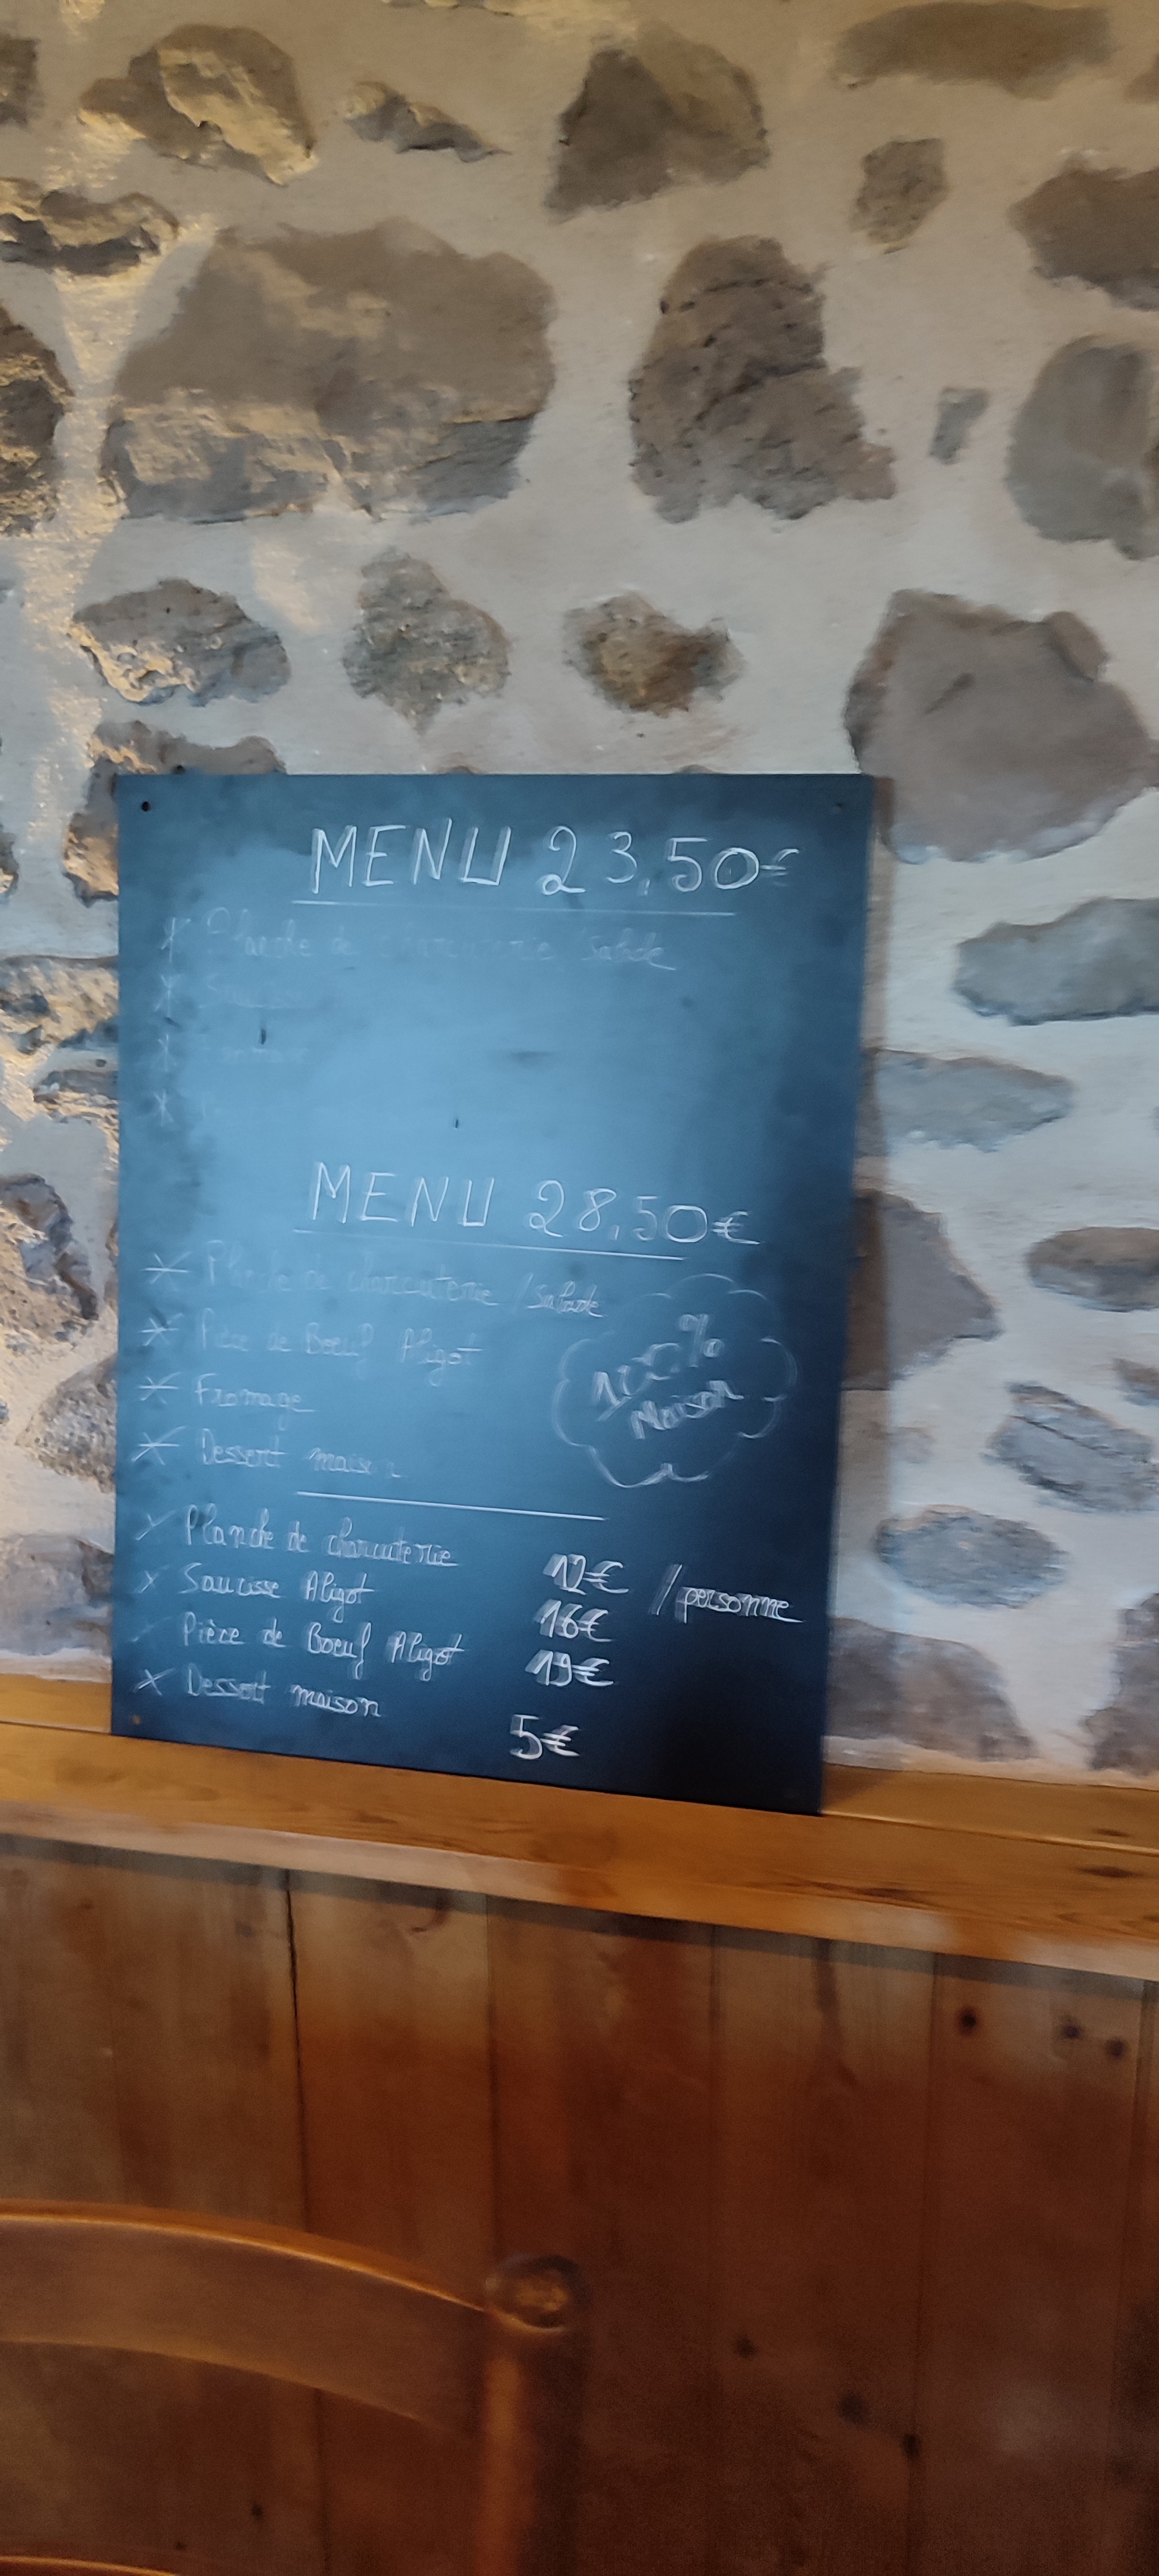 MENU 23,50€
* Planche de charcuterie Salade
*
*
*
MENU 28,50€
* Planche de charcuterie / Salade
* Pièce de Boeuf Aligot
* Fromage
* Dessert maison
100% Maison
* Planche de charcuterie 12€ / personne
* Saucisse Aligot 16€
* Pièce de Boeuf Aligot 19€
* Dessert maison 5€